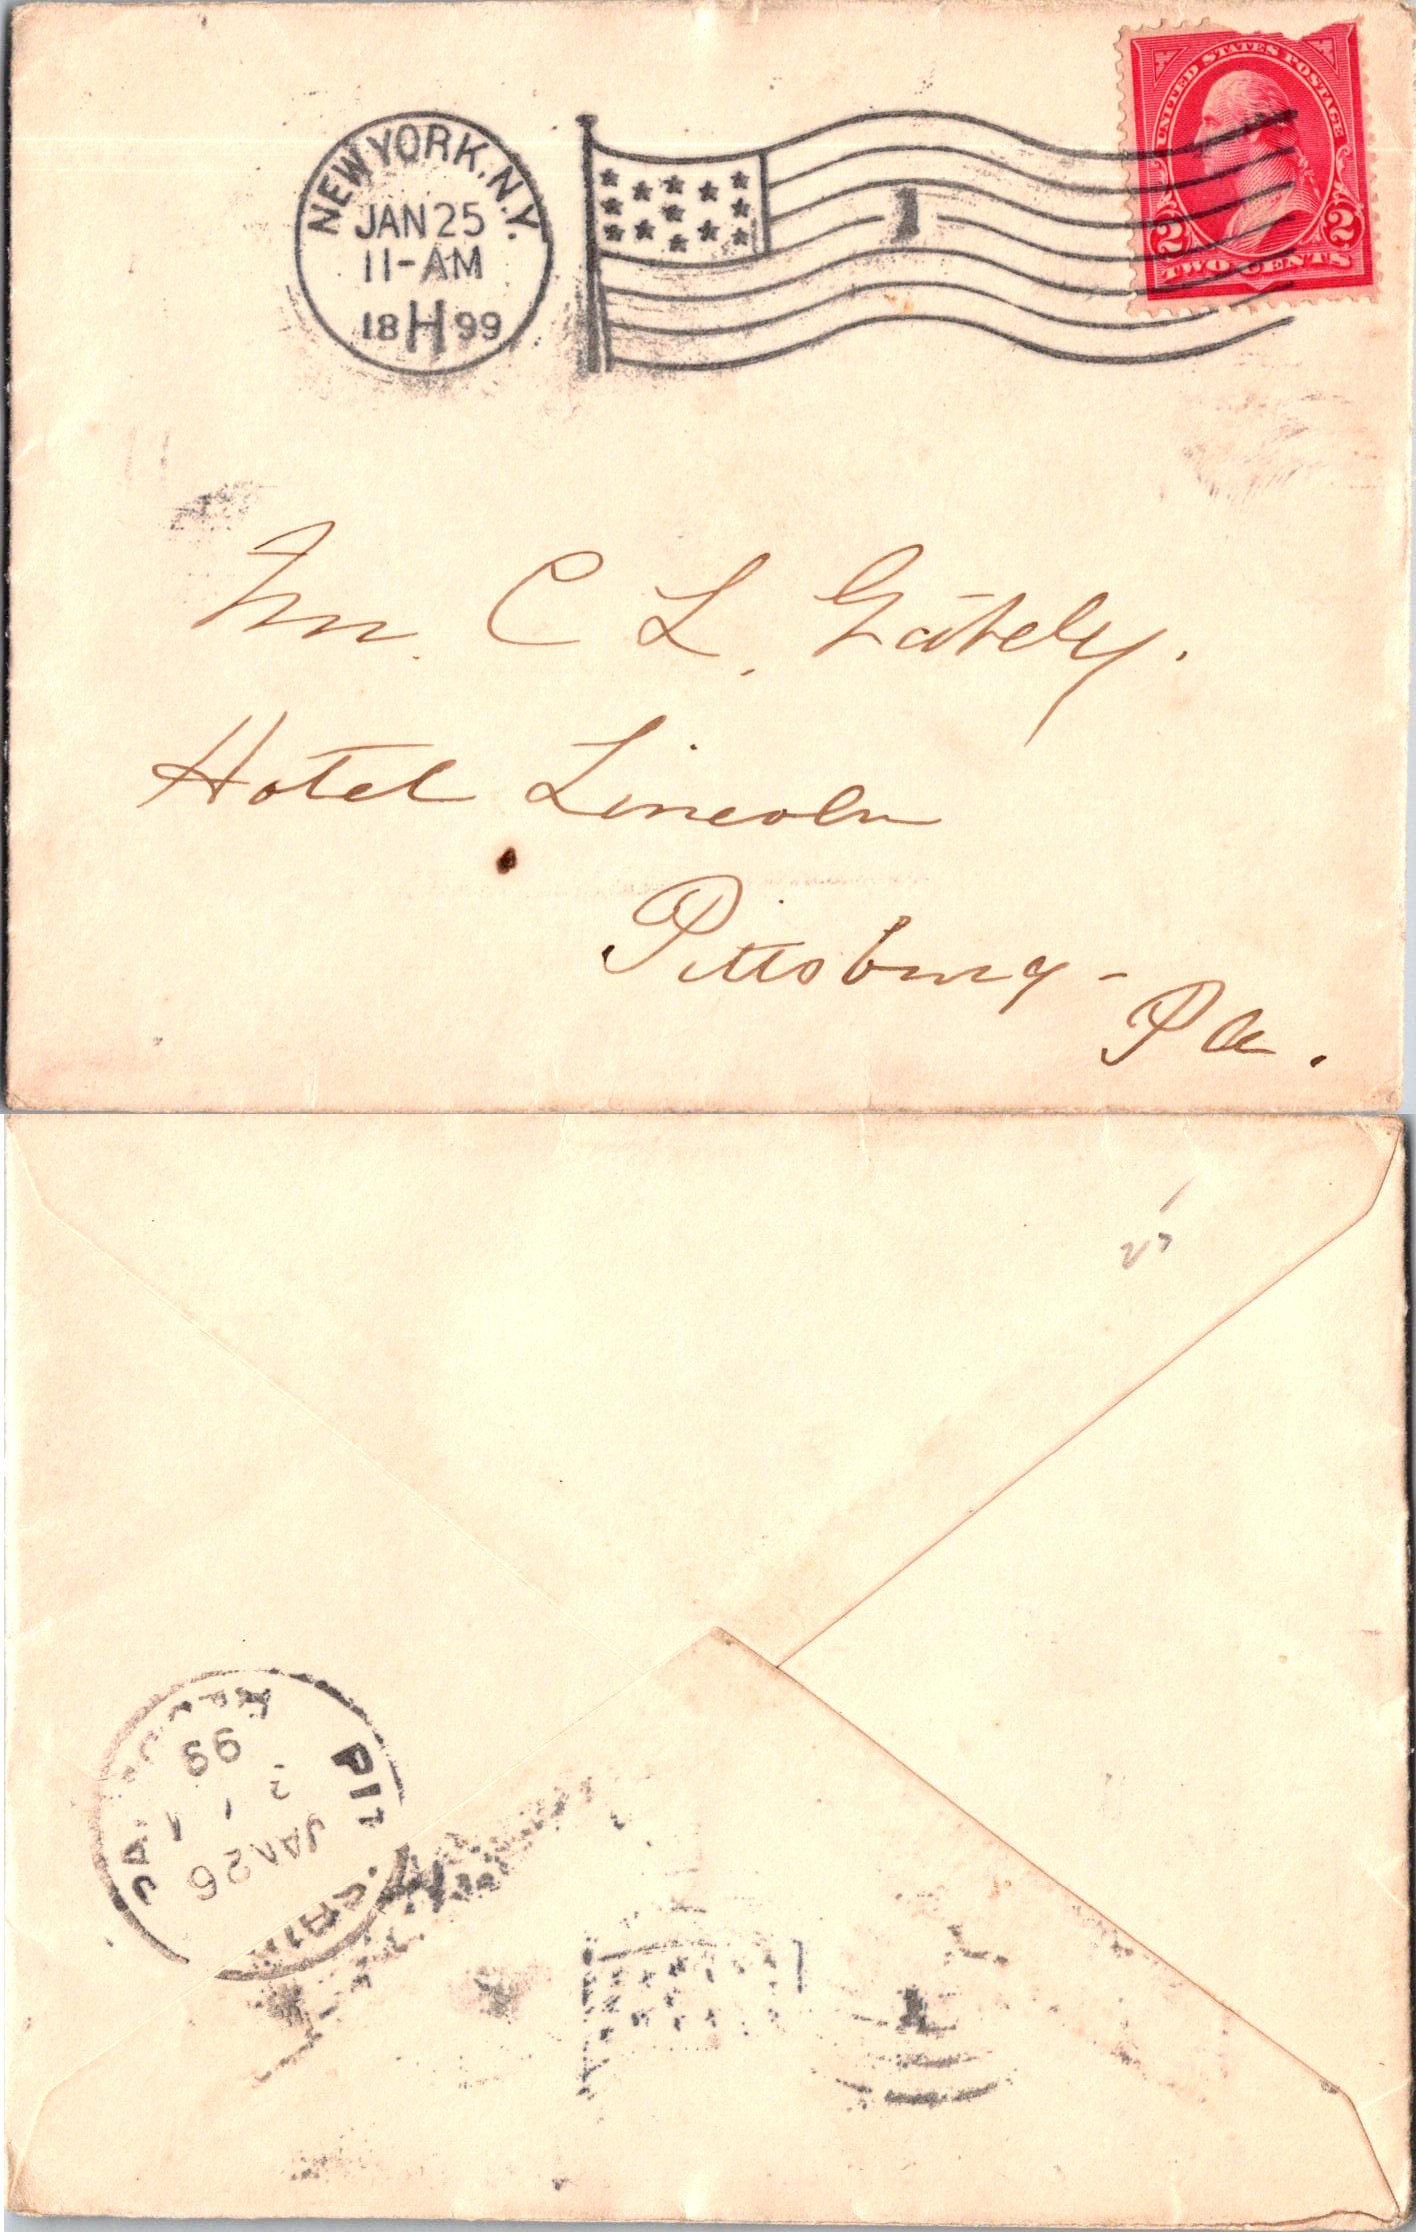 NEW YORK, N.Y.
JAN 25
11-AM
18 H 99
1
UNITED STATES POSTAGE
2 2
TWO CENTS
Mr. C L. Gately.
Hotel Lincoln
Pittsburg -
Pa.
JAN 26
99
1